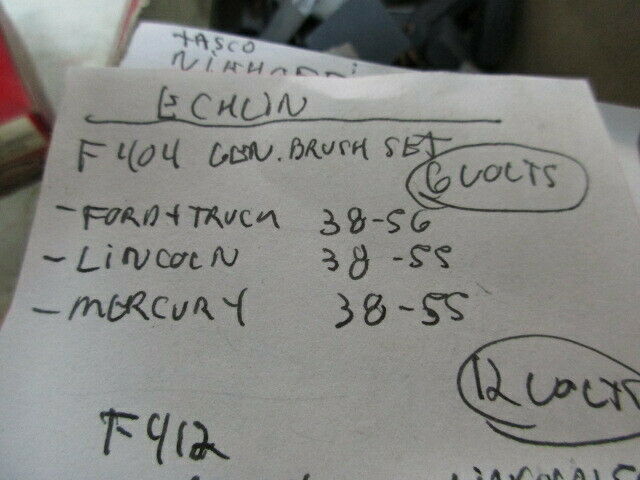 TASCO
ECHLIN
F404 GEN. BRUSH SET
6 VOLTS
- FORD + TRUCK 38-56
- LINCOLN 38-55
- MERCURY 38-55
12 VOLTS
F412